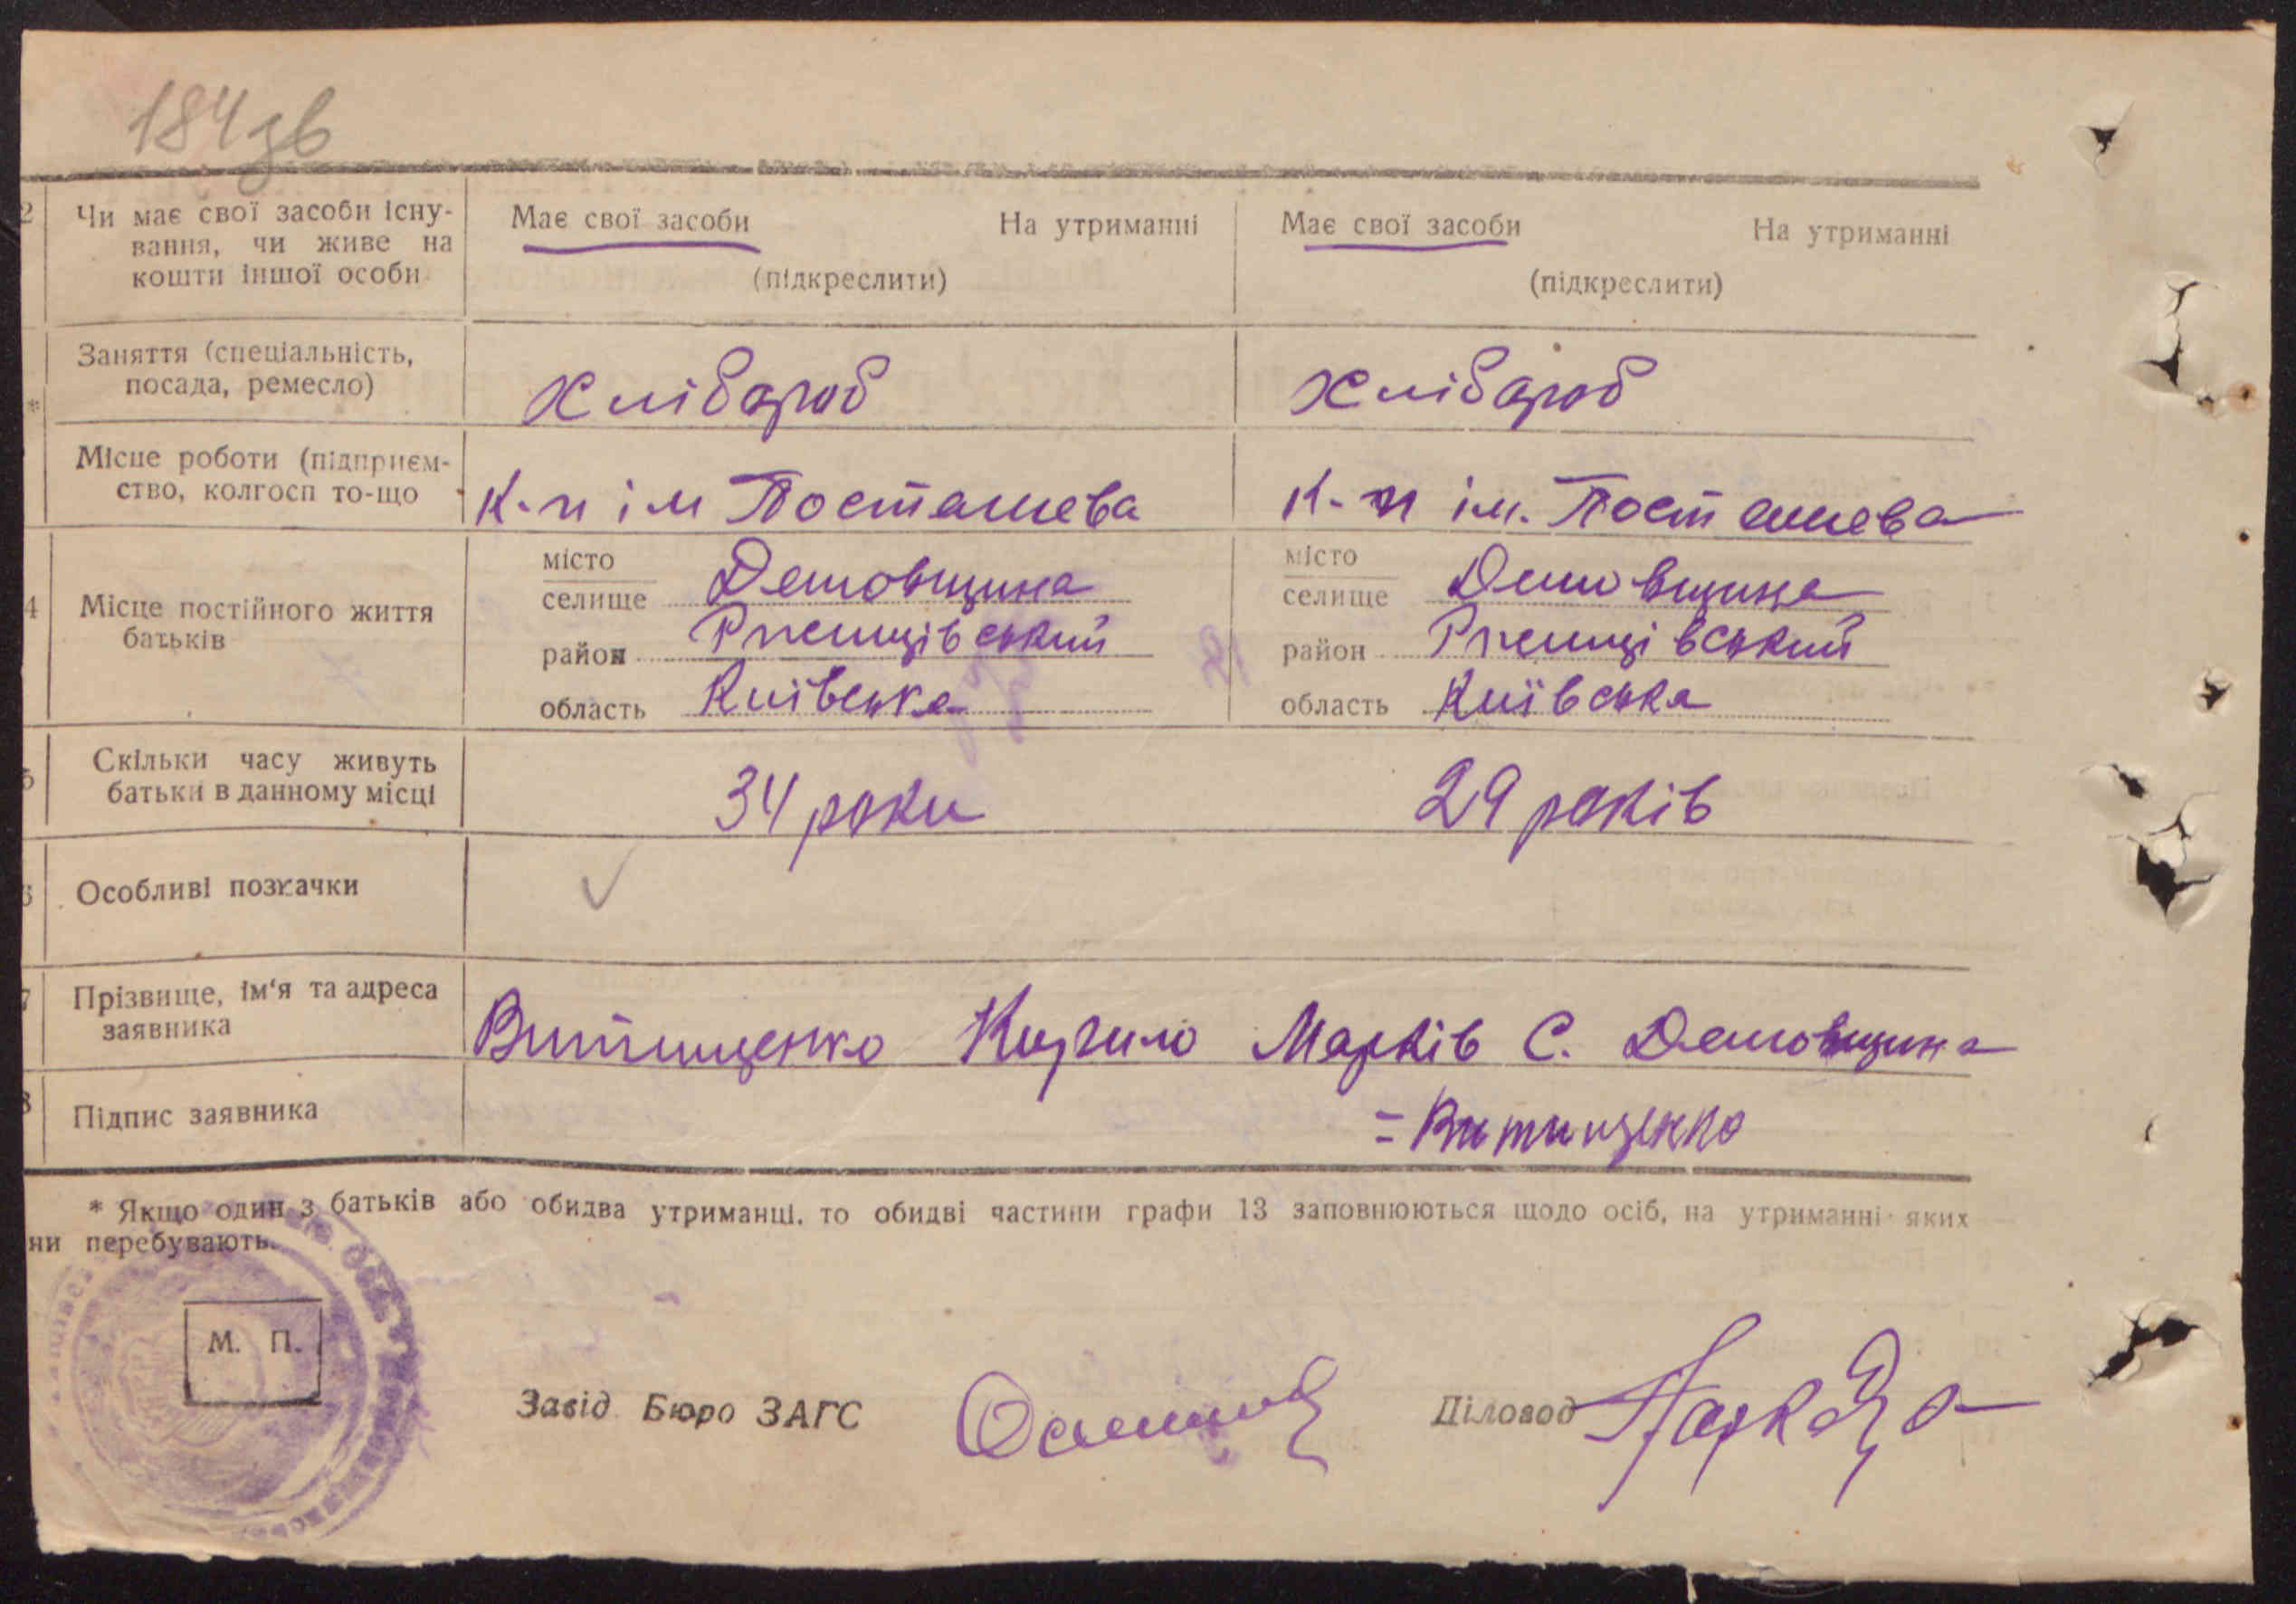 184 зв
2 Чи має свої засоби існу- Має свої засоби На утриманні Має свої засоби На утриманні
вання, чи живе на
кошти іншої особи (підкреслити) (підкреслити)
Заняття (спеціальність,
посада, ремесло) Хлібороб Хлібороб
*
Місце роботи (підприєм-
ство, колгосп то-що К-п ім Посташева К-п ім. Посташева
місто місто
селище Демовщина селище Демовщина
4 Місце постійного життя
батьків
район Ржищівський район Ржищівський
область Київська область Київська
5 Скільки часу живуть
батьки в данному місці 34 роки 29 років
6 Особливі позначки
7 Прізвище, ім'я та адреса
заявника Витищенко Кирило Марків С. Демовщина
8 Підпис заявника = Витищенко
* Якщо один з батьків або обидва утриманці, то обидві частини графи 13 заповнюються щодо осіб, на утриманні яких
ни перебувають.
М. П.
Завід Бюро ЗАГС Діловод